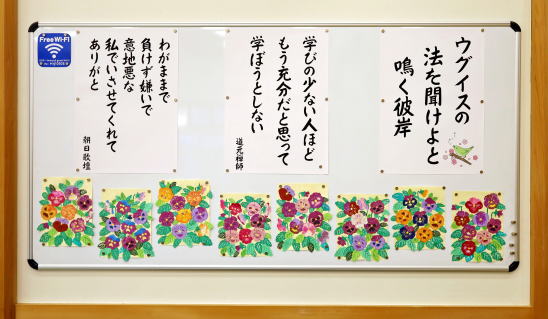 Free Wi-Fi
ウグイスの
法を聞けよと
鳴く彼岸
学びの少ない人ほど
もう充分だと思って
学ぼうとしない
道元禅師
わがままで
負けず嫌いで
意地悪な
私でいさせてくれて
ありがと
朝日歌壇